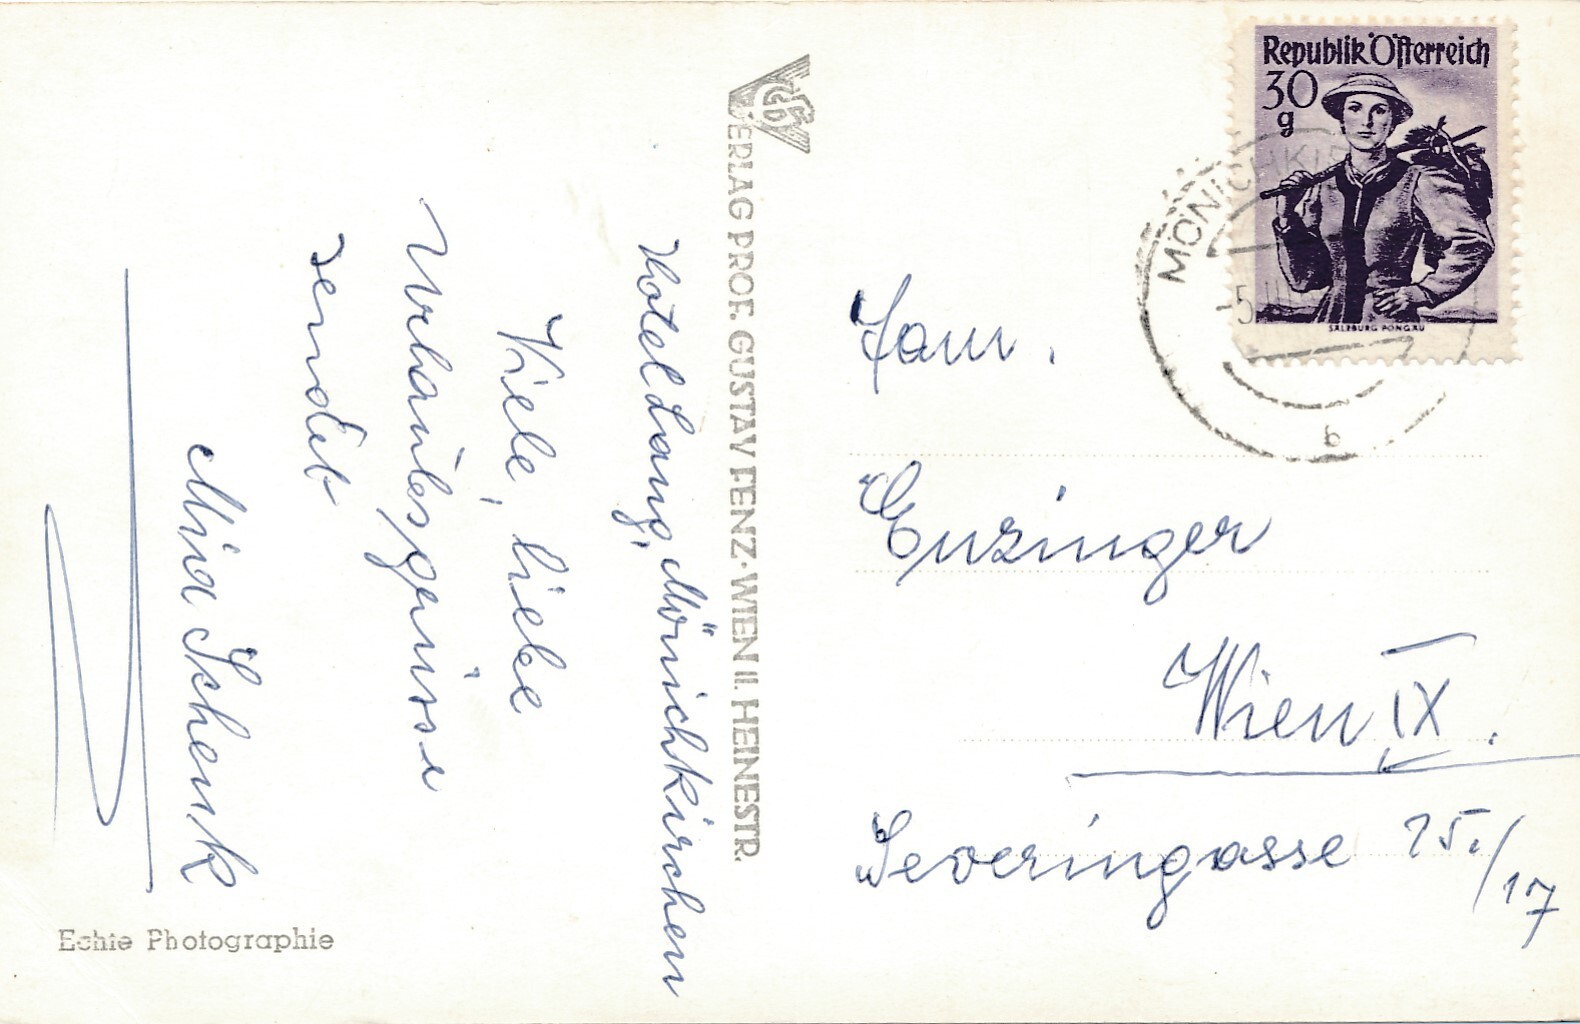 Hotel Lang, Mönichkirchen
Viele, liebe
Urlaubsgrüsse
sendet
Mia Schenk
Echte Photographie
VERLAG PROF. GUSTAV FENZ · WIEN II. HEINESTR.
Republik Österreich
30
g
SALZBURG PONGAU
MÖNICHKI
-5.
b
Fam.
Enzinger
Wien IX.
Severingasse 15./
17